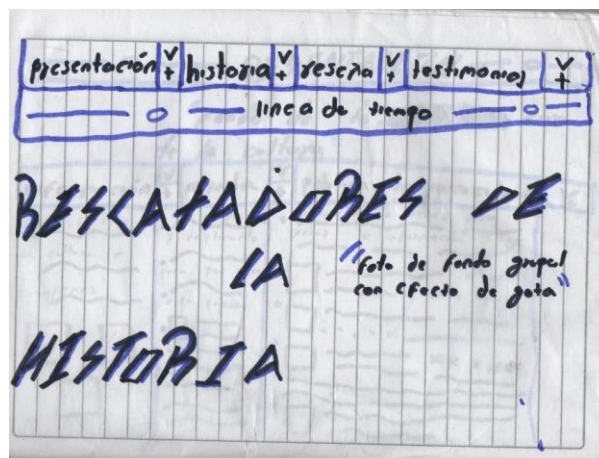 presentación V + historia V + reseña V + testimonios V +
linea de tiempo
RESCATADORES DE
LA
"foto de fondo grupal
con efecto de gota"
HISTORIA